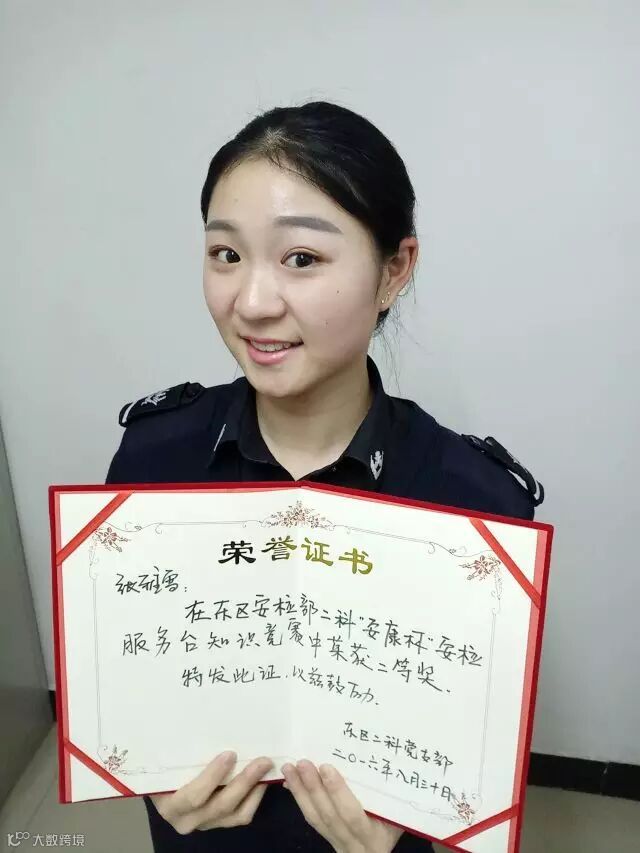 荣誉证书
张雅雪：
在东区安检部二科“安康杯”安检
服务台知识竞赛中荣获二等奖.
特发此证,以兹鼓励.
东区二科党支部
二〇一六年八月三十日
大数跨境